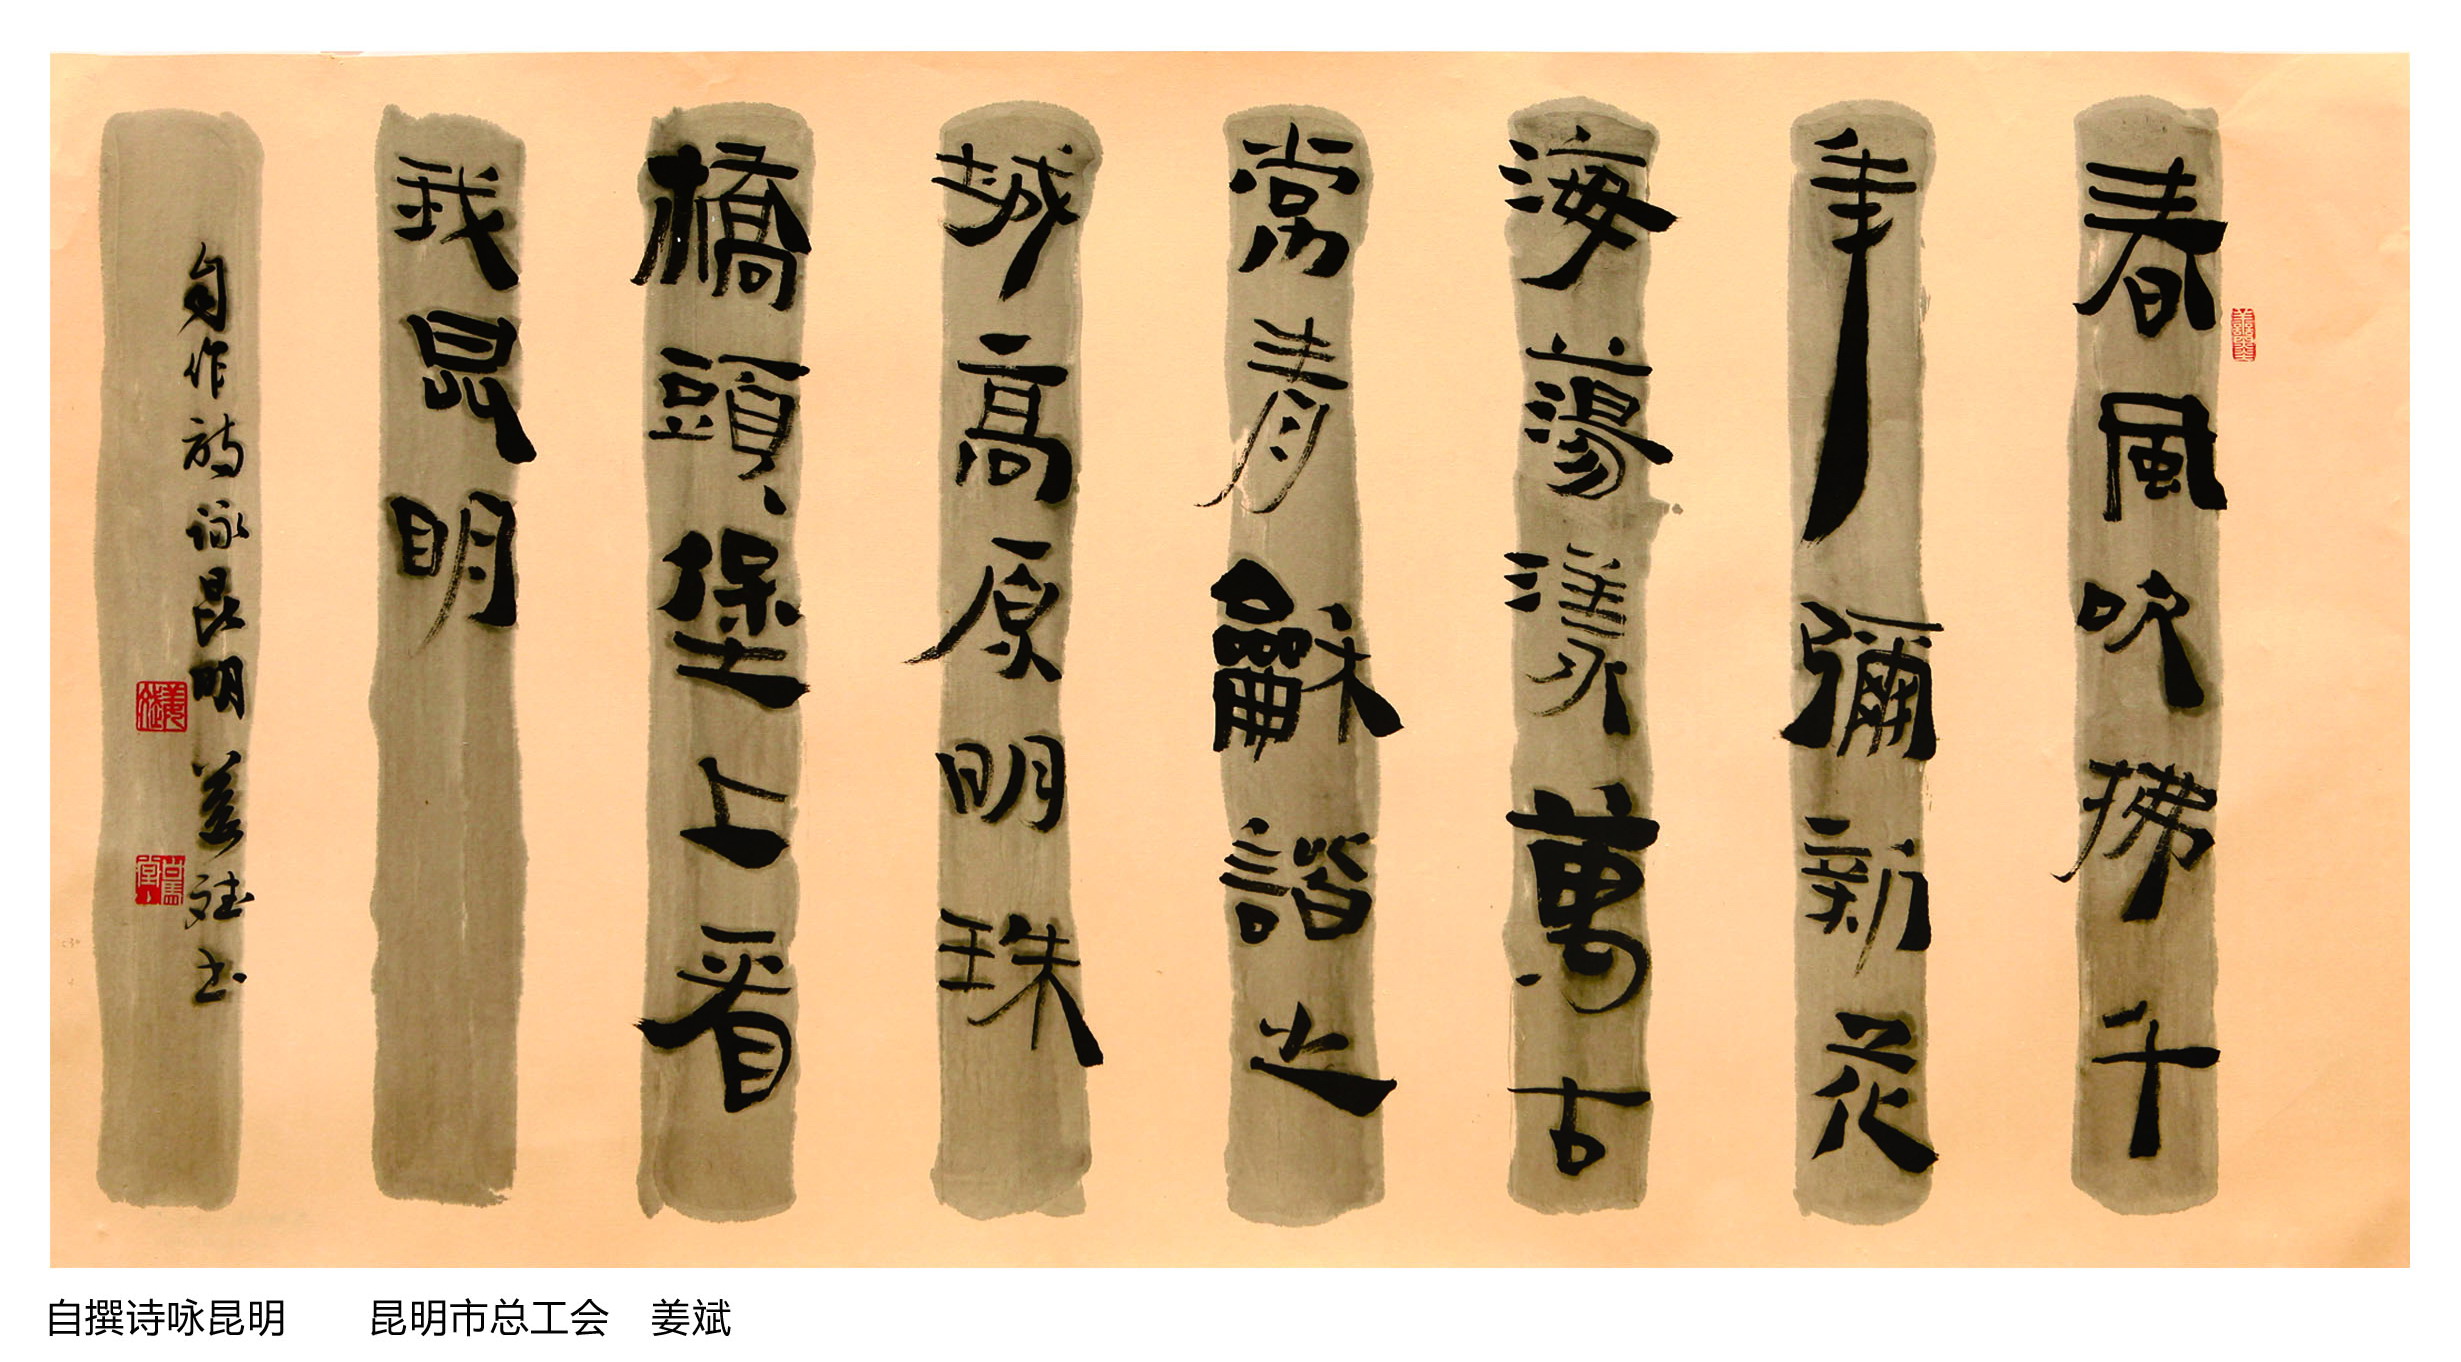 春風吹拂千
年彌新花
海蕩漾萬古
常青龢諧之
城高原明珠
橋頭堡上看
我昆明
自作詩詠昆明 姜斌書
姜斌
自撰诗咏昆明 昆明市总工会 姜斌